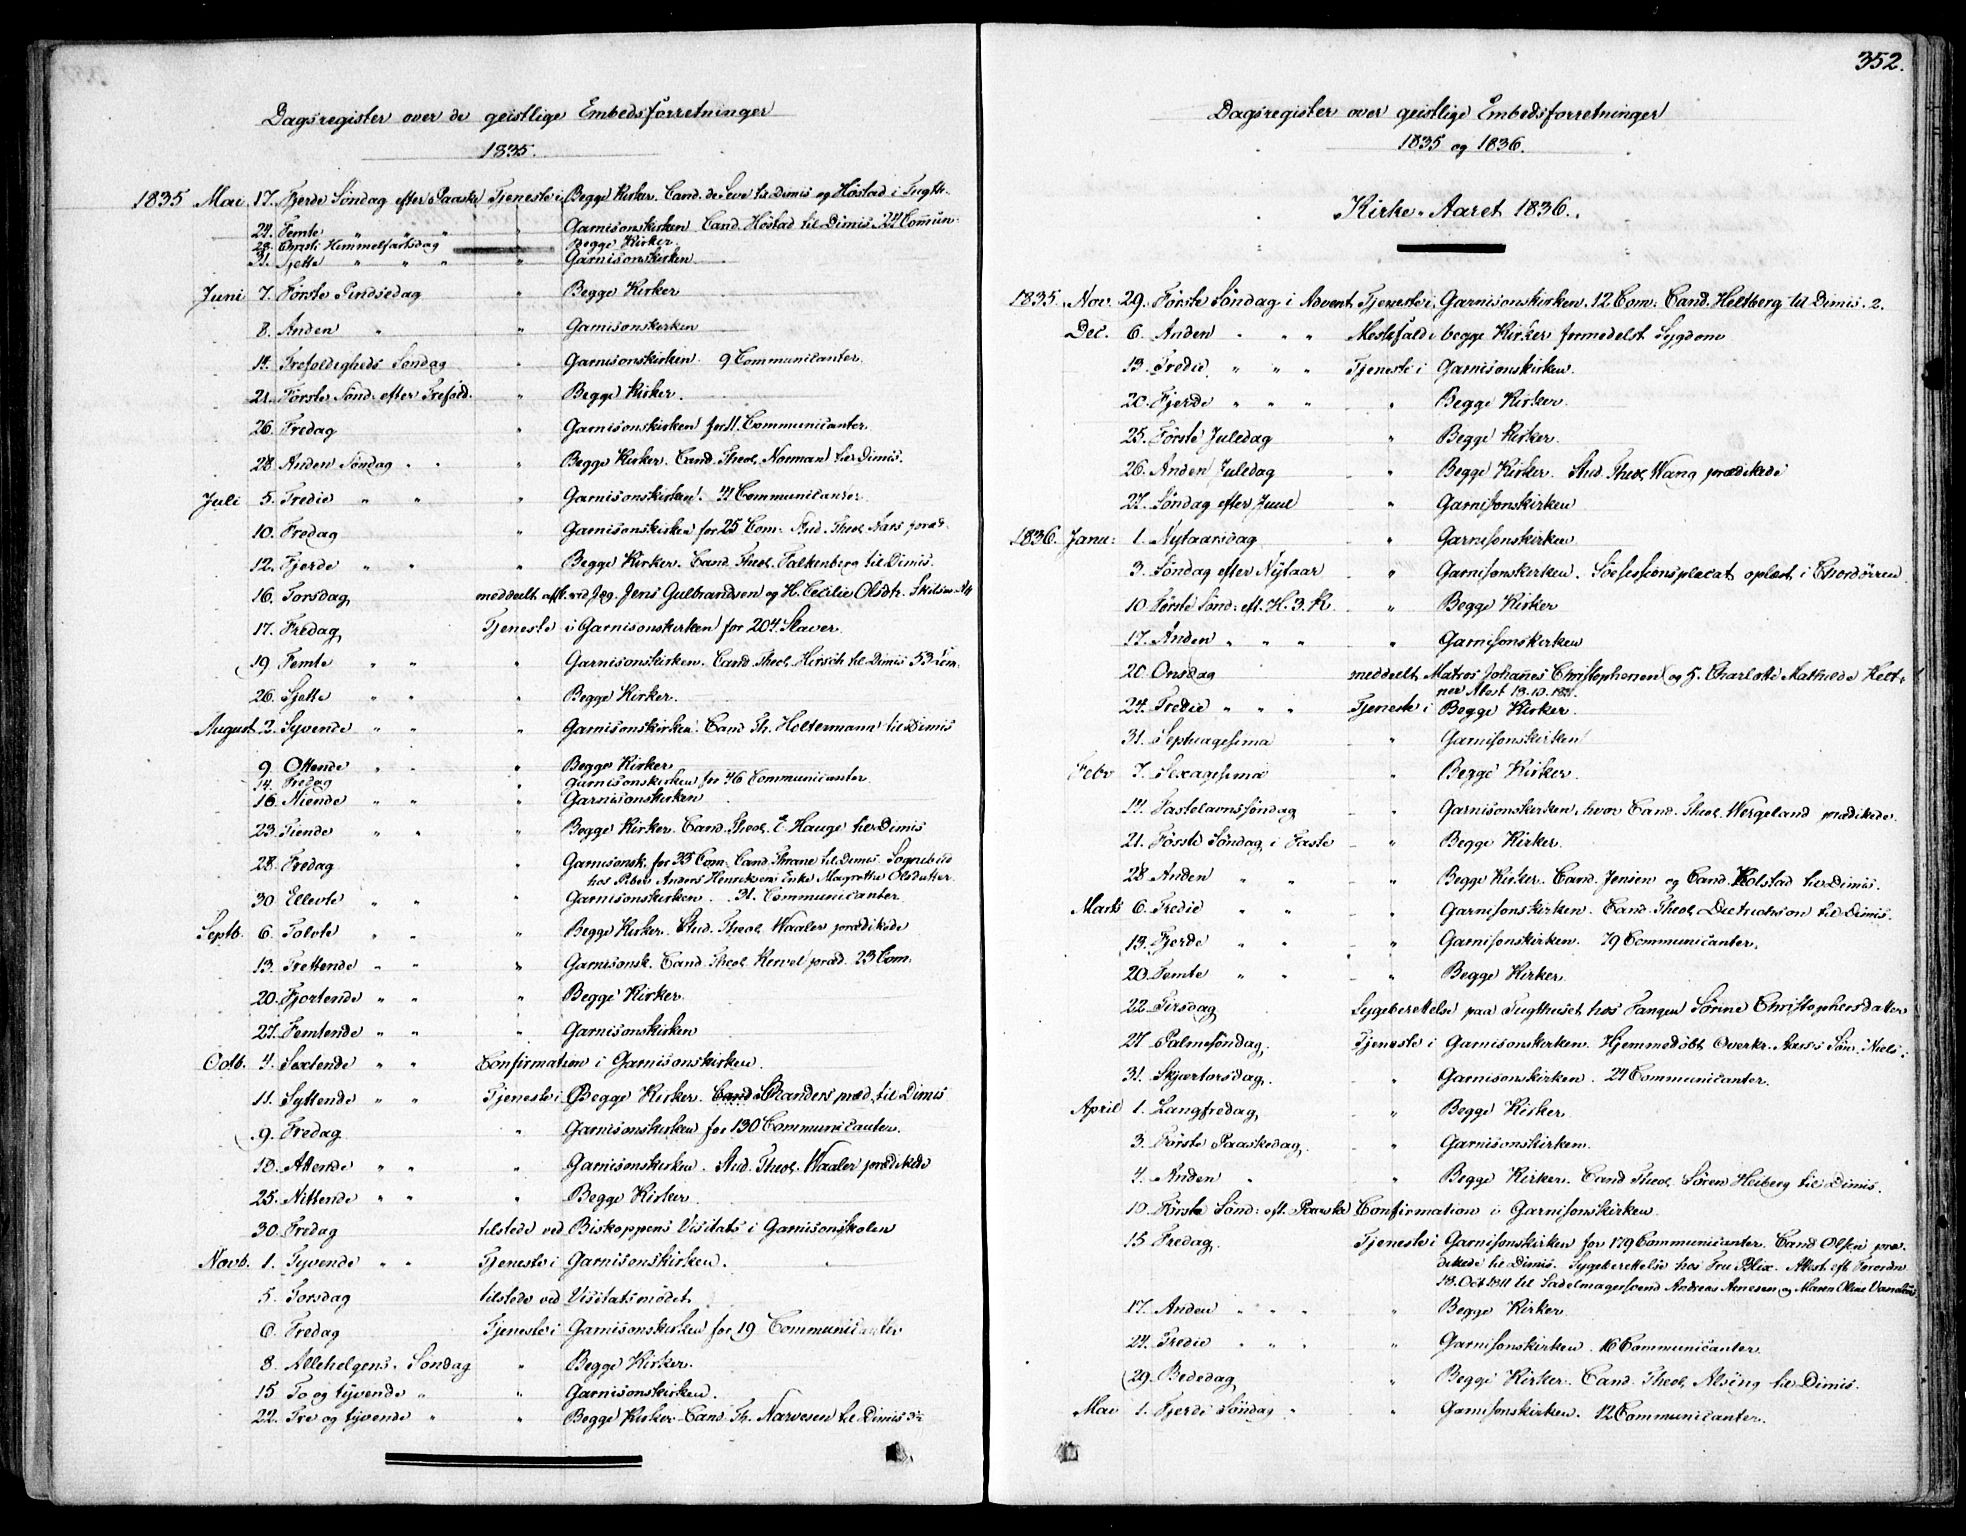 Dagsregister over de geistlige Embedsforretninger
1835.
1835 Mai 17. Fjerde Søndag efter Paaske Tjeneste i Begge Kirker. Cand. de Seve til Dimis og Høstad i Tugth.
24. Femte " " " " Garnisonskirken Cand. Høstad til Dimis. 24 Comun.
28. Christi Himmelfartsdag Begge Kirker.
31. Sjette " " " " Garnisonskirken
Juni 7. Første Pindsedag " Begge Kirker
8. Anden " " Garnisonskirken
14. Trefoldigheds Søndag " Garnisonskirken 9 Communicanter.
21. Første Sønd. efter Trefold. " Begge Kirker.
26. Fredag " Garnisonskirken for 11 Communicanter.
28. Anden Søndag " " " Begge Kirker. Cand. Theol. Norman til Dimis.
Juli 5. Tredie " " " Garnisonskirken. 41 Communicanter
10. Fredag " Garnisonskirken for 25 Com. Stud. Theol. præd.
12. Fjerde " " " Begge Kirker. Cand. Theol. Falkenberg til Dimis.
16. Torsdag meddeelt att. ved Jens Gulbrandsen og H. Cecilie Olsdtr.
17. Fredag Tjeneste i Garnisonskirken for 204 Slaver.
19. Femte " " " Garnisonskirken. Cand. Theol. Hirsch til Dimis 53 Com.
26. Sjette " " " Begge Kirker.
August 2. Syvende " " " Garnisonskirken. Cand. Th. Holtermann til Dimis
9. Ottende " " " Begge Kirker
14. Fredag " Garnisonskirken for 46 Communicanter
16. Niende " " " Garnisonskirken
23. Tiende " " " Begge Kirker. Cand. Theol. E. Hauge til Dimis
28. Fredag " Garnisonsk. for 35 Com. Cand. Thrane til Dimis. Sognebud
hos Anders Henriksens Enke Magrethe Olsdatter
30 Ellevte " " " Garnisonskirken. 31. Communicanter
Septb. 6. Tolvte " " " Begge Kirker. Stud. Theol. Waaler prædikede
13. Trettende " " " Garnisonsk. Cand. Theol. præd. 23 Com.
20. Fjortende " " " Begge Kirker
27. Femtende " " " Garnisonskirken
Octb. 4. Sextende " " Confirmation i Garnisonskirken.
11. Syttende " " Tjeneste i Begge Kirker. Cand. præd. til Dimis
9. Fredag " Garnisonskirken for 130 Communicanter.
18. Attende " " " Garnisonskirken. Stud. Theol. Waaler prædikede
25. Nittende " " " Begge Kirker
30. Fredag tilstede ved Biskoppens Visitats i Garnisonsskolen
Novb. 1. Tyvende " " Tjeneste i Garnisonskirken.
5. Torsdag tilstede ved Visitatsmødet.
6. Fredag Tjeneste i Garnisonskirken for 19 Communicanter
8. Allehelgens Søndag " Begge Kirker.
15. To og tyvende " " Garnisonskirken.
22. Tre og tyvende " " Begge Kirker Cand. Th. Narvesen til Dimis
352.
Dagsregister over geistlige Embedsforretninger
1835 og 1836.
Kirke-Aaret 1836.
1835. Nov. 29. Første Søndag i Advent Tjeneste i Garnisonskirken. 12 Com. Cand. Heltberg til Dimis. 2.
Dec. 6. Anden " " " Messefald i begge Kirker formedelst Sygdom
13. Tredie " " " Tjeneste i Garnisonskirken.
20. Fjerde " " " " Begge Kirker.
25. Første Juledag " Begge Kirker.
26. Anden Juledag " Begge Kirker. Stud. Theol. Wang prædikede
27. Søndag efter Juul " Garnisonskirken
1836. Janu: 1. Nytaarsdag " Garnisonskirken
3. Søndag efter Nytaar " Garnisonskirken. Søesessionsplacat oplæst i Chordørren
10. Første Sønd. eft. H. 3. K. " Begge Kirker
17. Anden " " " " Garnisonskirken
20. Onsdag meddeelt Matros Johannes Christophersen og J. Charlotte Mathilde Helt-
ner Attest
24. Tredie " " " Tjeneste i Begge Kirker.
31. Septuagesima " Garnisonskirken
Febr 7. Sexagesima " Begge Kirker.
14. Fastelavnssøndag " Garnisonskirken, hvor Cand. Theol. Wergeland prædikede
21. Første Søndag i Faste " Begge Kirker.
28. Anden " " " Begge Kirker. Cand. Jensen og Cand. Kolstad til Dimis.
Marts 6. Tredie " " " Garnisonskirken. Cand. Theol. Dietrichson til Dimis.
13. Fjerde " " " Garnisonskirken. 79 Communicanter.
20. Femte " " " Begge Kirker
22. Tirsdag Sygeberettelse paa Tugthuset hos Fangen Sørine Christophersdatter
27. Palmesøndag Tjeneste i Garnisonskirken. Hjemmedøbt Overkr. Aars's Søn. Niels
31. Skjærtorsdag. " Garnisonskirken. 24 Communicanter.
April 1. Langfredag " Begge Kirker
3. Første Paaskedag. " Garnisonskirken.
4. Anden " " Begge Kirker. Cand. Theol. Søren Heiberg til Dimis.
10. Første Sønd. eft. Paaske Confirmation i Garnisonskirken.
15 Fredag. Tjeneste i Garnisonskirken for 179 Communicanter. Cand. Olsen præ-
dikede til Dimis. Sygeberettelse hos Fru Blix. Attest eft. Forordn
til Sadelmagersvend Andreas Arnesen og Maren Oline
17. Anden " " " " Begge Kirker.
24. Tredie " " " " Garnisonskirken. 16 Communicanter.
29. Bededag " Begge Kirker. Cand. Theol. Alsing til Dimis.
Mai 1. Fjerde Søndag " " Garnisonskirken. 12 Communicanter.